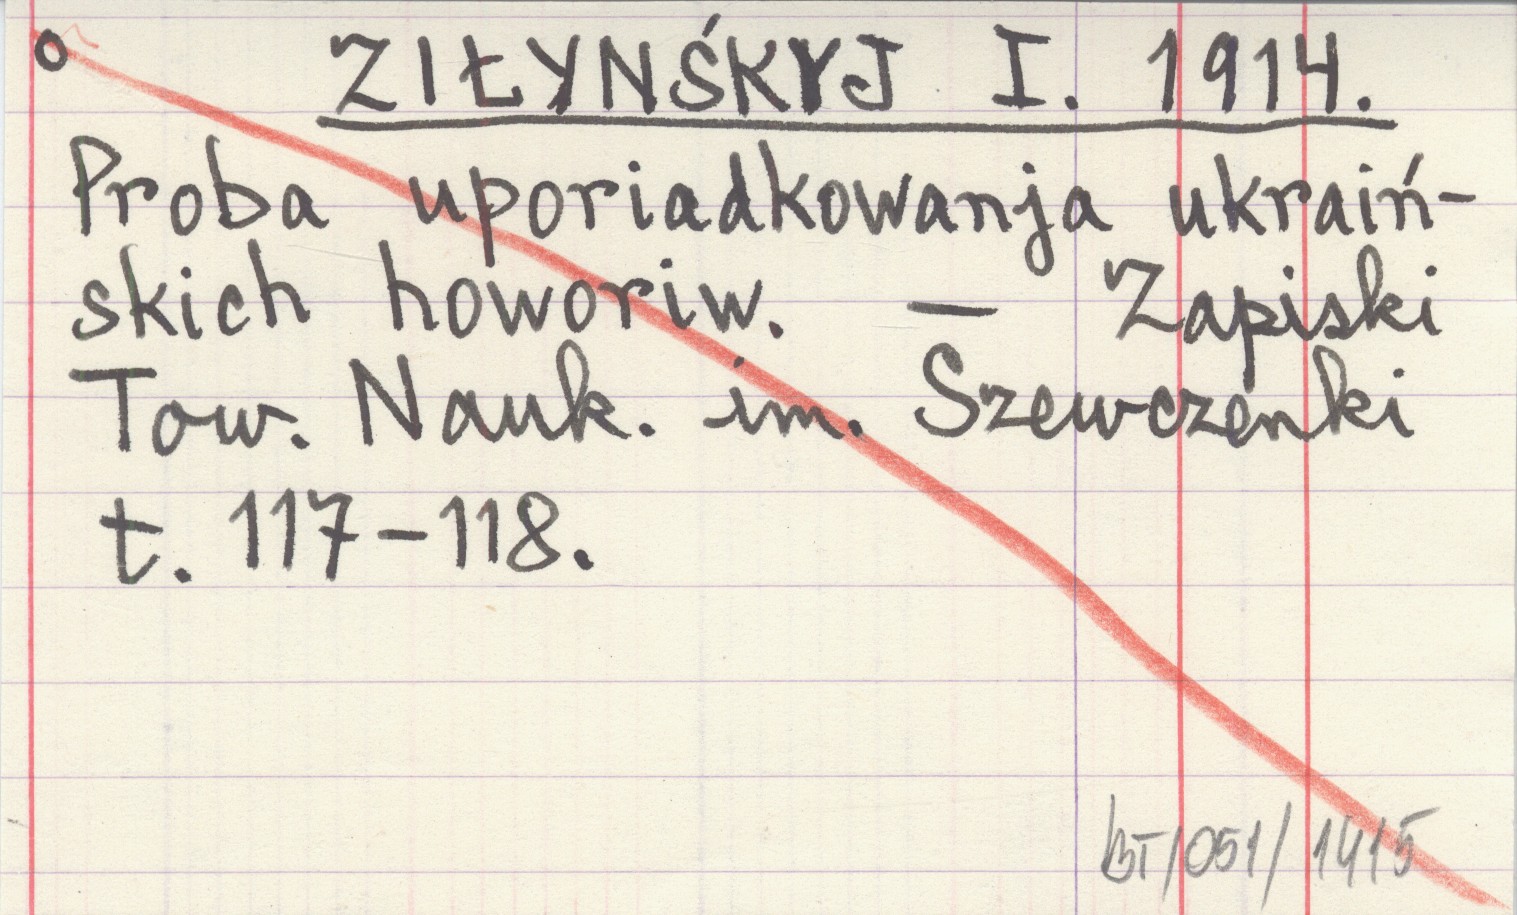 o ZIŁYNŚKYJ I. 1914.
Proba uporiadkowanja ukraiń-
skich howoriw. — Zapiski
Tow. Nauk. im. Szewczenki
t. 117-118.
BT/051/1415